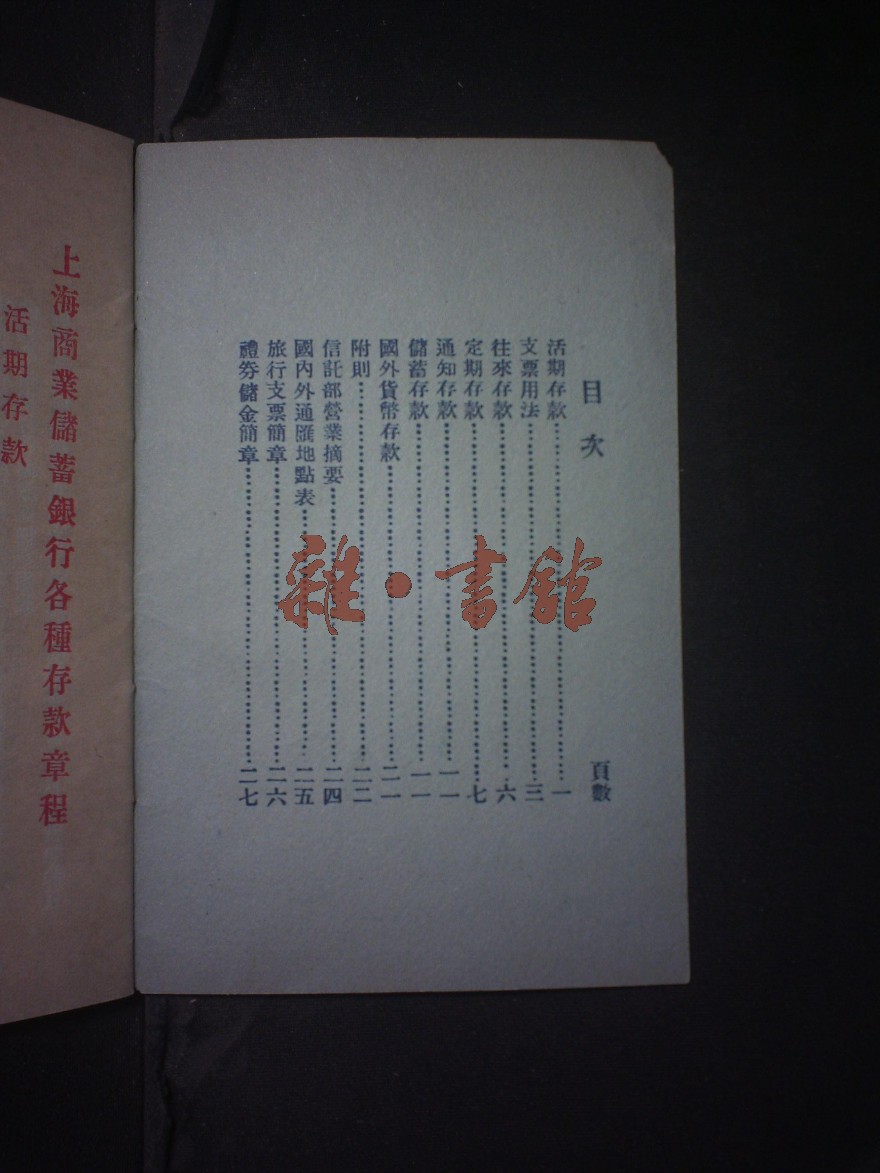 目次
頁數
活期存款 一
支票用法 三
往來存款 六
定期存款 七
通知存款 一一
儲蓄存款 一一
國外貨幣存款 二一
附則 二二
信託部營業摘要 二四
國內外通匯地點表 二五
旅行支票簡章 二六
禮券儲金簡章 二七
上海商業儲蓄銀行各種存款章程
活期存款
雜·書館